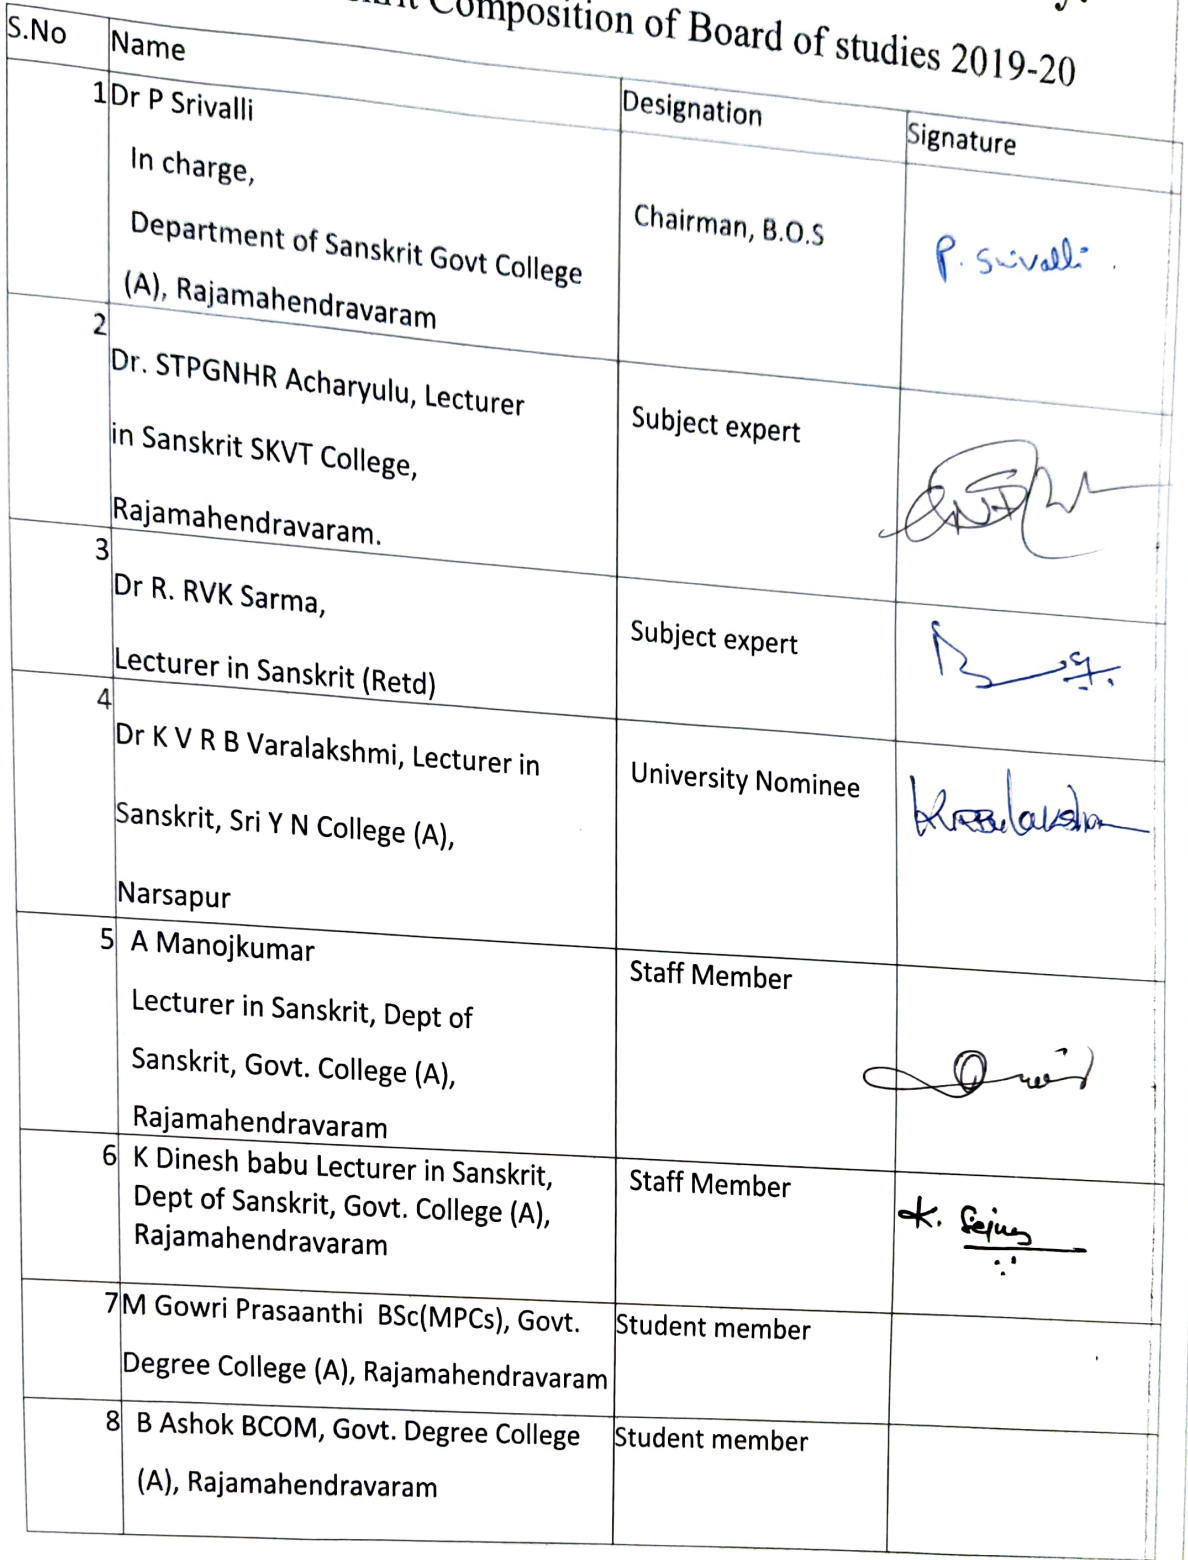 Composition of Board of studies 2019-20
S.No Name Designation Signature
1 Dr P Srivalli
In charge,
Department of Sanskrit Govt College
(A), Rajamahendravaram
Chairman, B.O.S
P. Srivalli
2
Dr. STPGNHR Acharyulu, Lecturer
in Sanskrit SKVT College,
Rajamahendravaram.
Subject expert
3
Dr R. RVK Sarma,
Lecturer in Sanskrit (Retd)
Subject expert
4
Dr K V R B Varalakshmi, Lecturer in
Sanskrit, Sri Y N College (A),
Narsapur
University Nominee
5 A Manojkumar
Lecturer in Sanskrit, Dept of
Sanskrit, Govt. College (A),
Rajamahendravaram
Staff Member
6 K Dinesh babu Lecturer in Sanskrit,
Dept of Sanskrit, Govt. College (A),
Rajamahendravaram
Staff Member
K.
7 M Gowri Prasaanthi BSc(MPCs), Govt.
Degree College (A), Rajamahendravaram
Student member
8 B Ashok BCOM, Govt. Degree College
(A), Rajamahendravaram
Student member